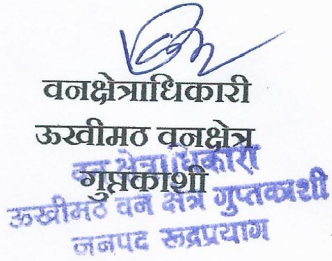 वनक्षेत्राधिकारी
ऊखीमठ वनक्षेत्र
गुप्तकाशी
वन क्षेत्राधिकारी
ऊखीमठ वन क्षेत्र गुप्तकाशी
जनपद रूद्रप्रयाग